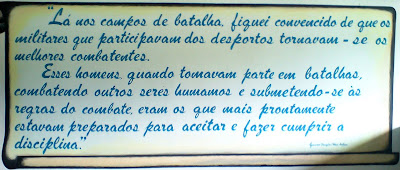 "Lá nos campos de batalha, fiquei convencido de que os
militares que participavam dos desportos tornavam-se os
melhores combatentes.
Esses homens, quando tomavam parte em batalhas,
combatendo outros seres humanos e submetendo-se às
regras do combate, eram os que mais prontamente
estavam preparados para aceitar e fazer cumprir a
disciplina."